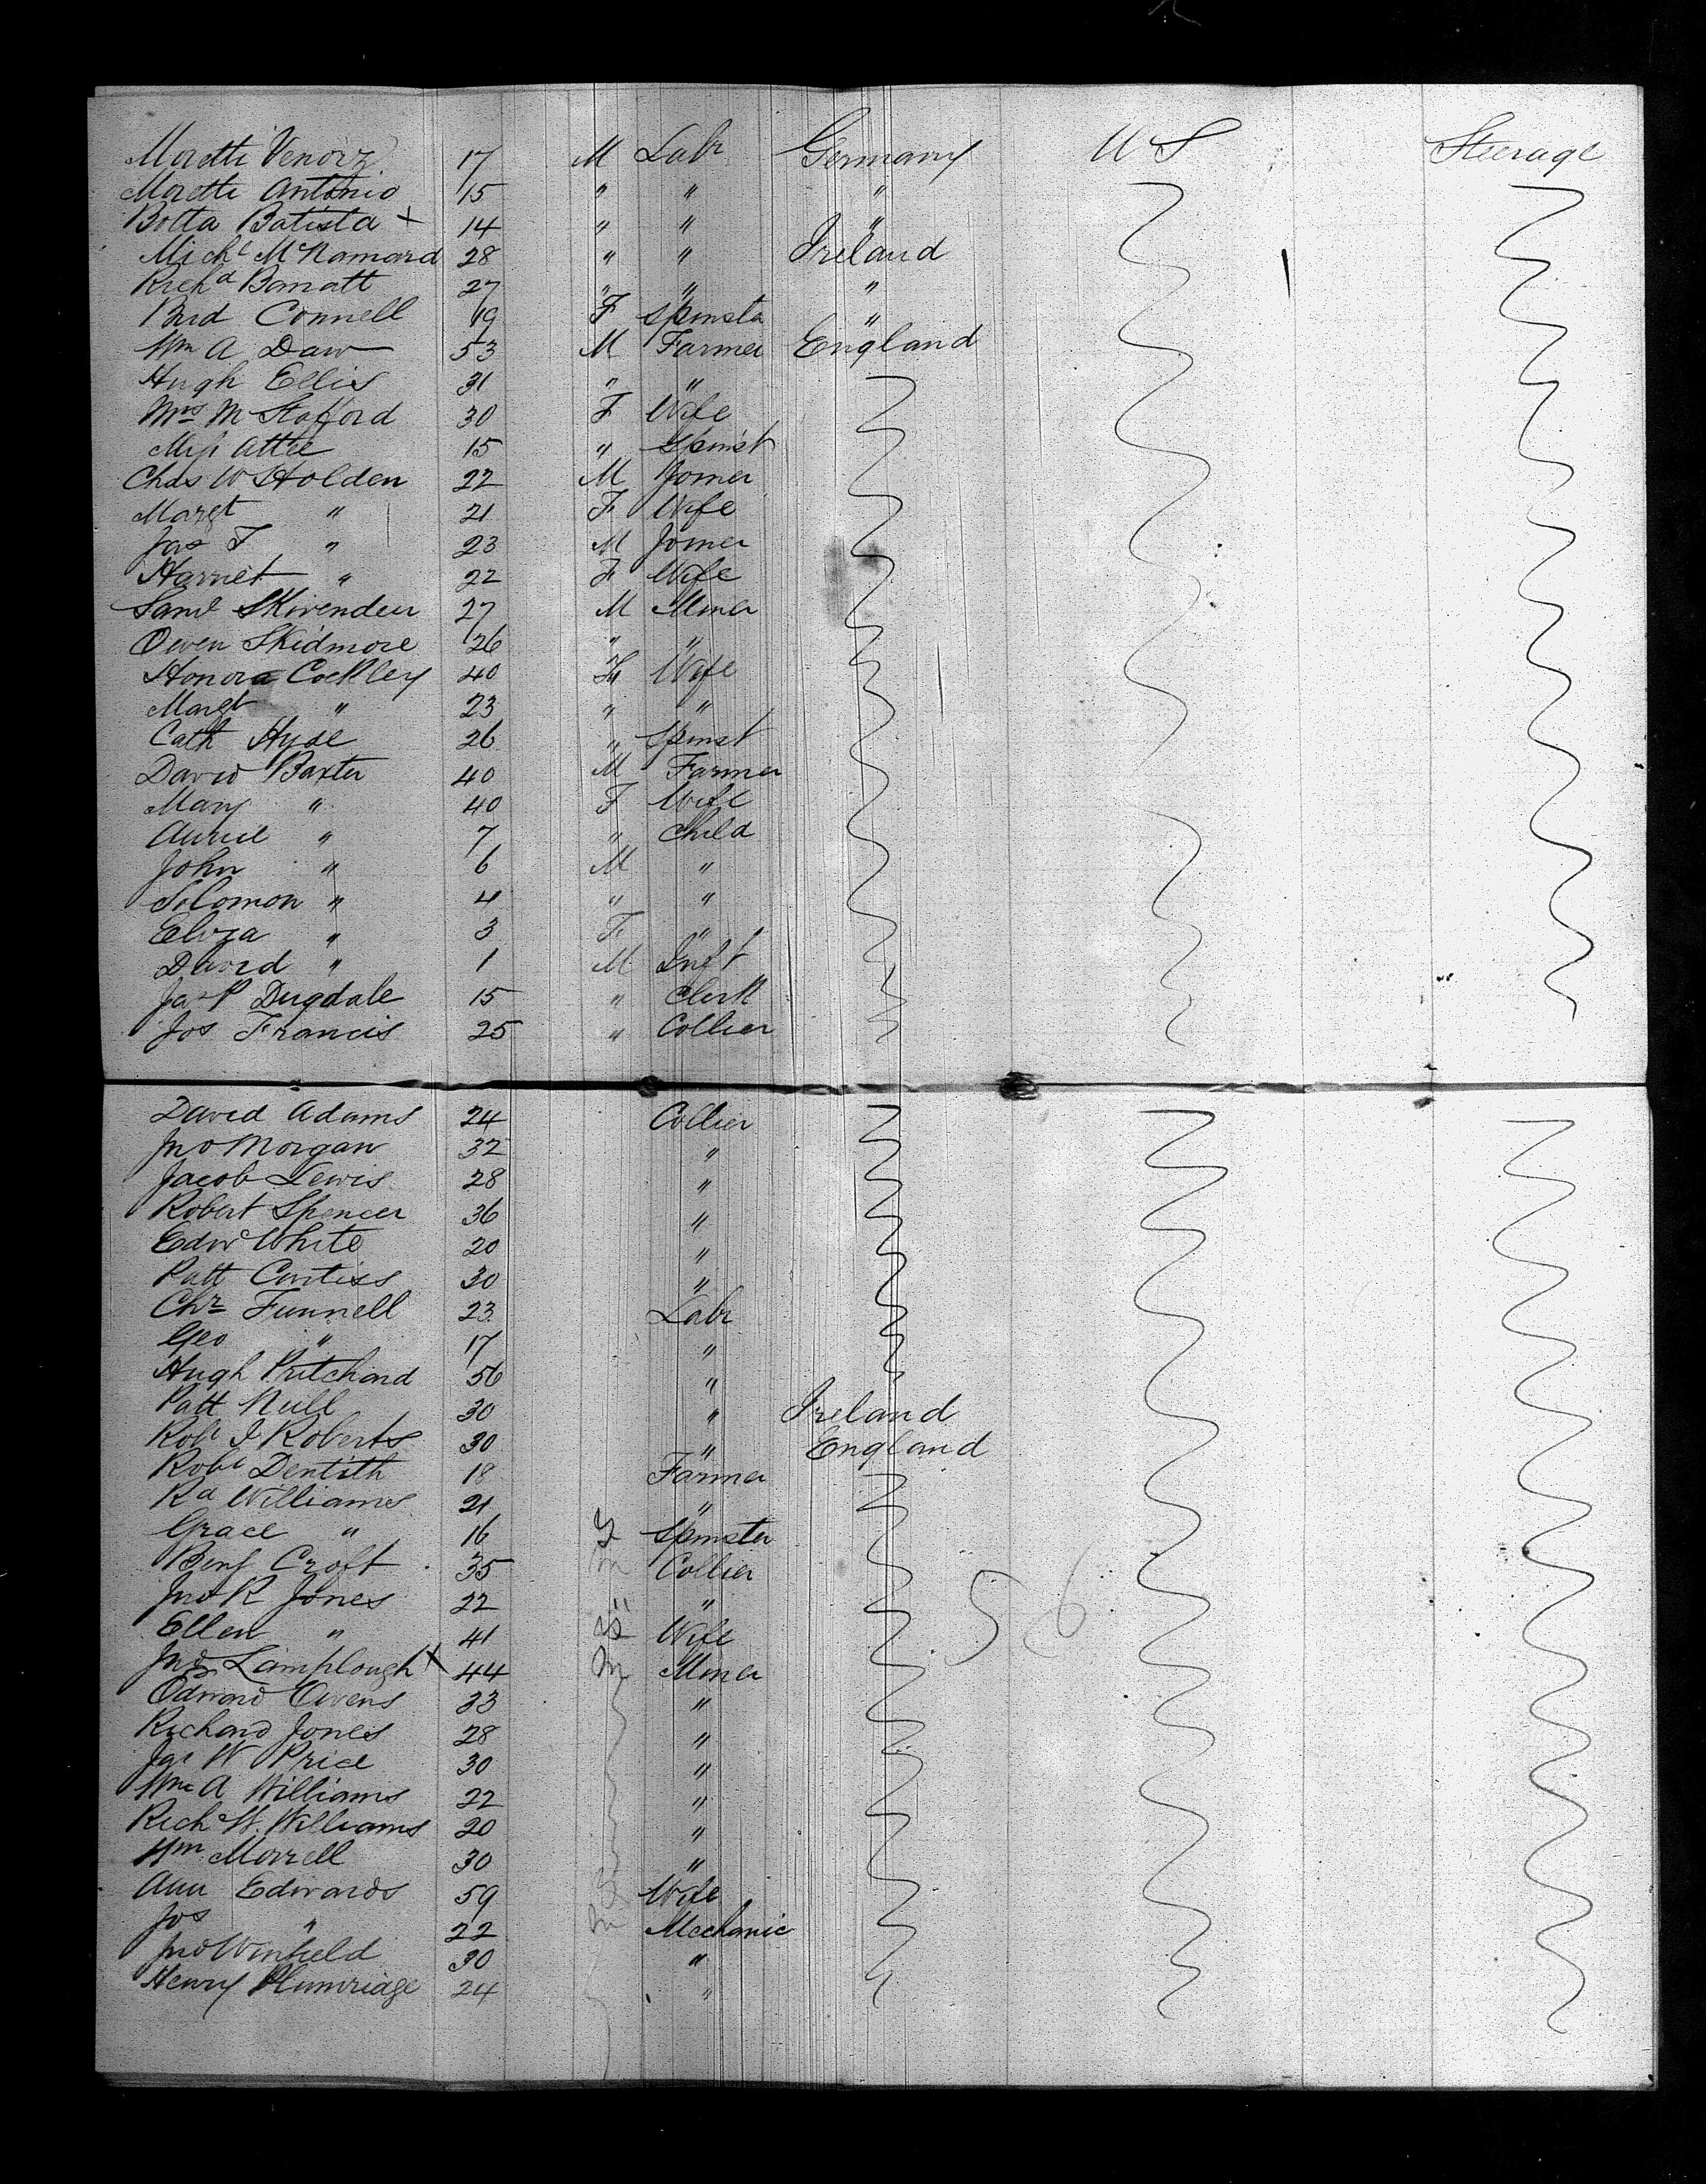 Moretti Venorz 17 M Labr Germany U S Steerage
Moretti Antonio 15 " " "
Botta Batista + 14 " " "
Michl McNamara 28 " " Ireland
Richd Barratt 27 " " "
Brid Connell 19 F Spinster "
Wm A Daw 53 M Farmer England
Hugh Ellis 31 " "
Mrs M Stafford 30 F Wife
Miss Attee 15 " Spinst
Chas W Holden 22 M Joiner
Margt " 21 F Wife
Jas T " 23 M Joiner
Harriet " 22 F Wife
Saml Skivenden 27 M Miner
Owen Skidmore 26 " "
Honora Cockley 40 F Wife
Margt " 23 " "
Cath Hyde 26 " Spinst
David Baxter 40 M Farmer
Mary " 40 F Wife
Annie " 7 " Child
John " 6 M "
Solomon " 4 " "
Eliza " 3 F "
David " 1 M Inft
Jas P Dugdale 15 " Clerk
Jos Francis 25 " Collier
David Adams 24 Collier
Jno Morgan 32 "
Jacob Lewis 28 "
Robert Spencer 36 "
Edwd White 20 "
Patt Curtiss 30 "
Chr Funnell 23 Labr
Geo " 17 "
Hugh Pritchard 56 "
Patt Neill 30 " Ireland
Robt J Roberts 30 " England
Robt Dentith 18 Farmer
Rd Williams 21 "
Grace " 16 F Spinster
Benj Croft 35 M Collier
Jno R Jones 22 " "
Ellen " 41 F Wife
Jno Lamplough + 44 M Miner
Edward Owens 33 "
Richard Jones 28 "
Jas W Price 30 "
Wm A Williams 22 "
Richd W. Williams 20 "
Wm Morrell 30 "
Ann Edwards 59 F Wife
Jos " 22 M Mechanic
Jno Winfield 30 "
Henry Plumridge 24 "
56